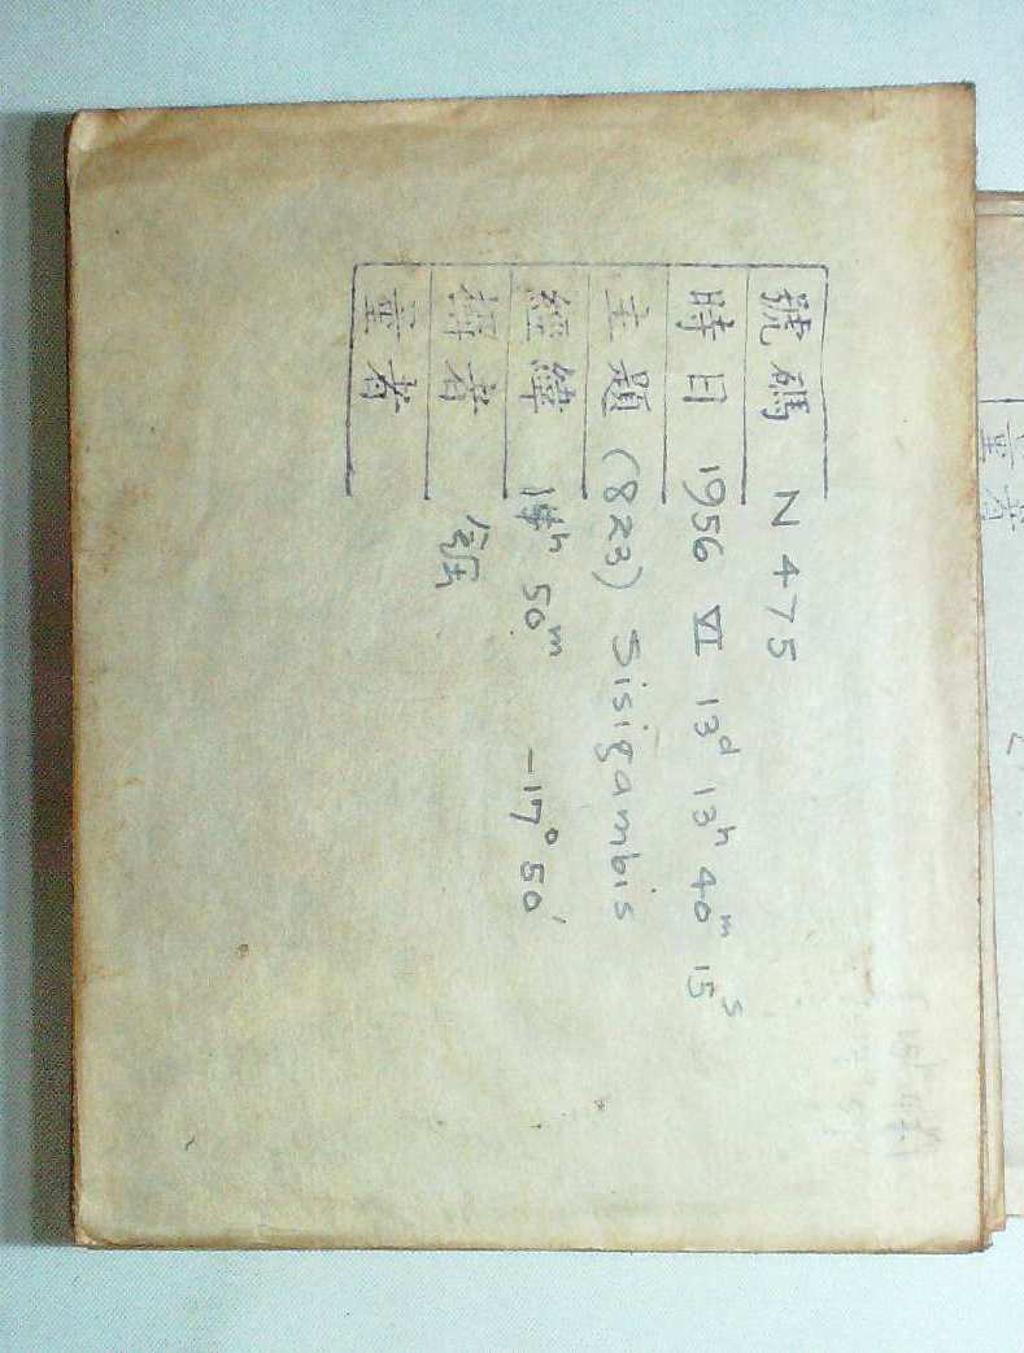 號碼 N 475
時日 1956 VI 13d 13h 40m 15s
主題 (823) Sisigambis
經緯 14h 50m -17° 50'
攝者
量者
量者